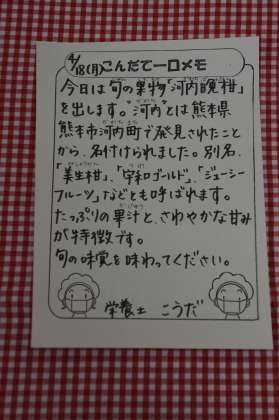 4/18(月)こんだて一口メモ
今日は旬の果物「河内晩柑」
を出します。"河内"とは熊本県
熊本市河内町で発見されたこと
から、名付けられました。別名、
「美生柑」、「宇和ゴールド」、「ジューシー
フルーツ」などとも呼ばれます。
たっぷりの果汁と、さわやかな甘み
が特徴です。
旬の味覚を味わってください。
栄養士 こうだ